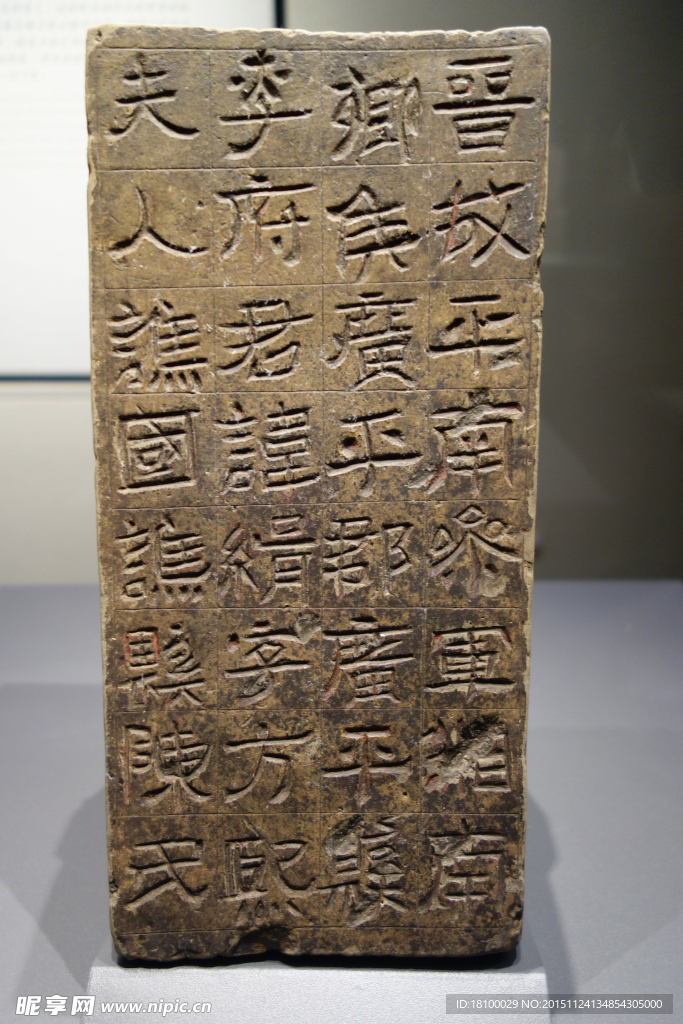 晉故平南參軍湘南
鄉侯廣平郡廣平縣
李府君諱緝字方熙
夫人譙國譙縣陳氏
昵享网 www.nipic.cn
ID:18100029 NO:20151124134854305000